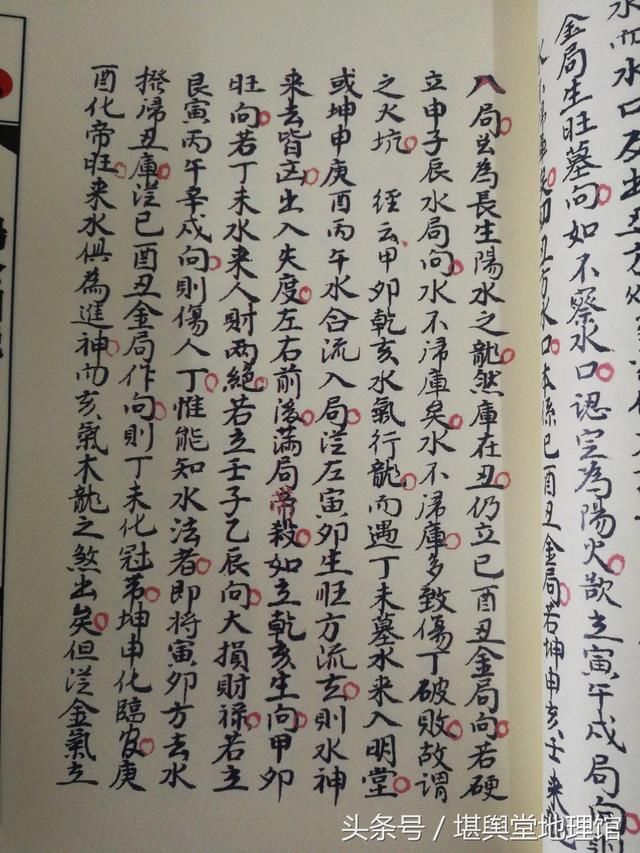 水而水口及出丑方
金局生旺墓向如不察水口認定為陽火欲立寅午戌局向
丑方水口本係巳酉丑金局若坤申亥壬來
入局出為長生陽水之龍然庫在丑仍立巳酉丑金局向若硬
立申子辰水局向水不歸庫矣水不歸庫多致傷丁破敗故謂
之火坑 經云甲卯乾亥水氣行龍而遇丁未墓水來入明堂
或坤申庚酉丙午水合流入局從左寅卯生旺方流去則水神
來去皆凶出入失度左右前後滿局帶殺如立乾亥生向甲卯
旺向若丁未水來人財兩絕若立壬子乙辰向大損財祿若立
艮寅丙午辛戌向則傷人丁惟能知水法者即將寅卯方去水
撥歸丑庫從巳酉丑金局作向則丁未化冠帶坤申化臨官庚
酉化帝旺來水俱為進神而亥氣木龍之煞出矣但從金氣立
头条号／堪舆堂地理馆